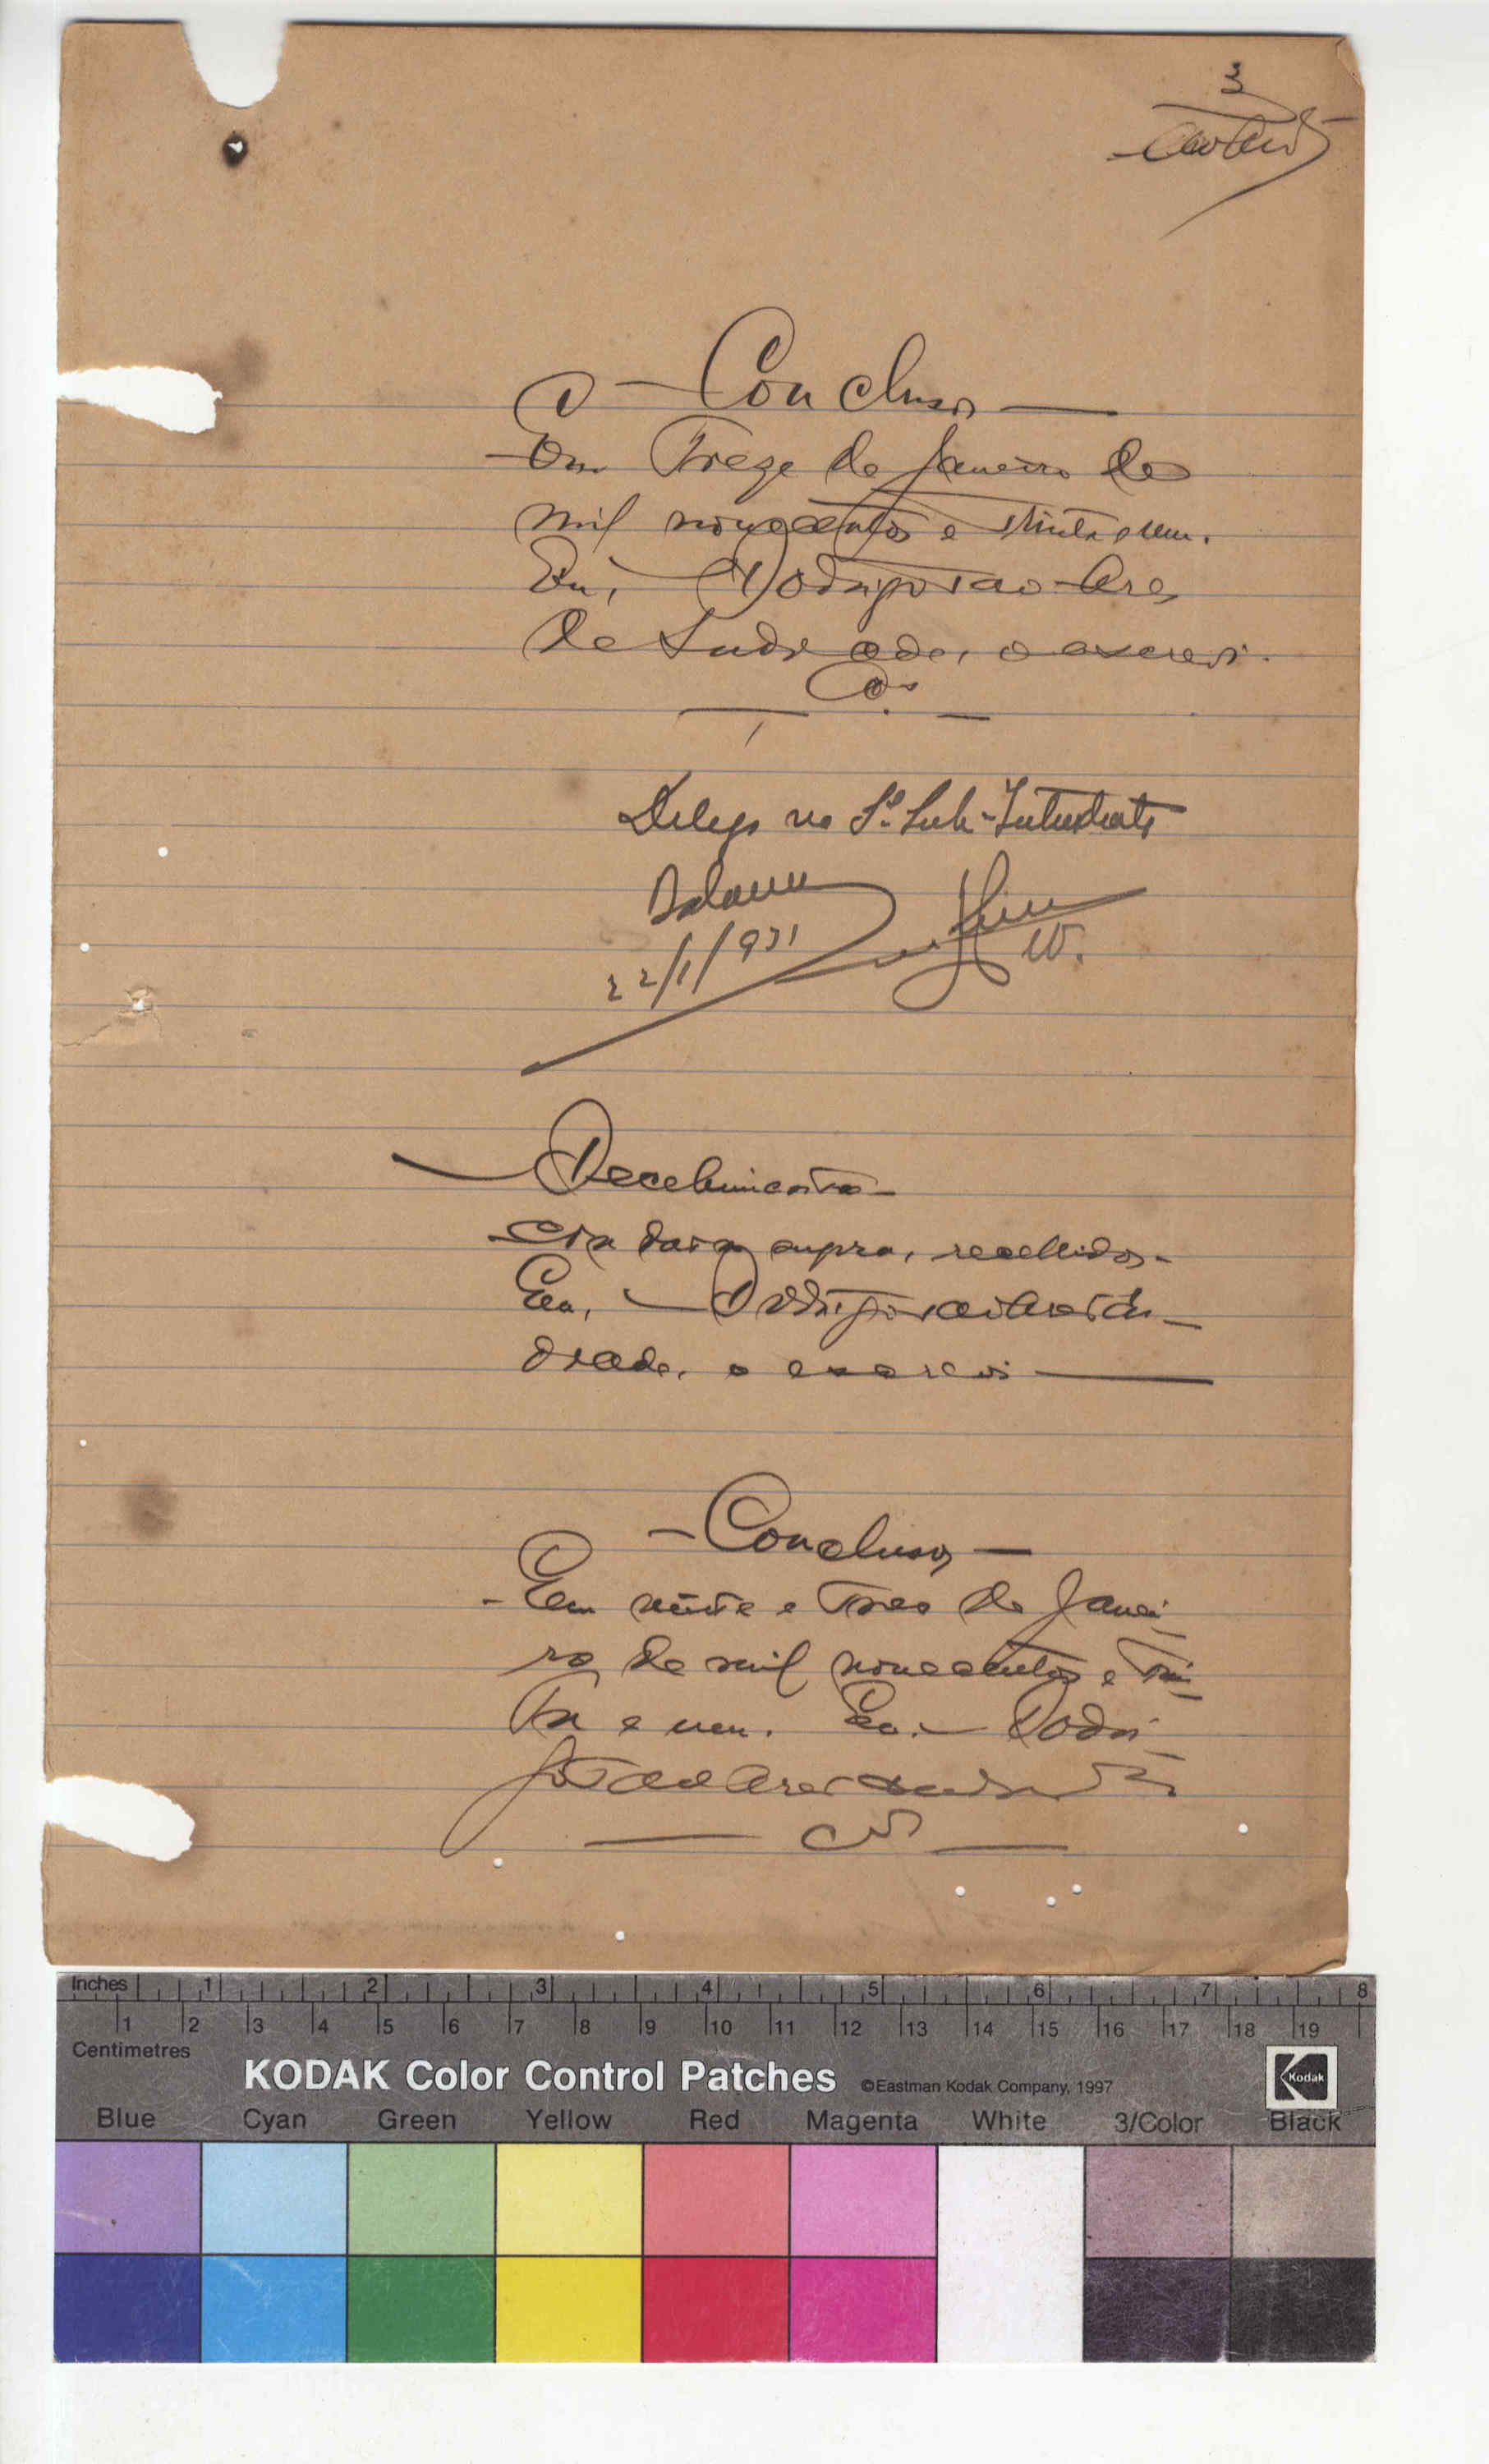 3
— Conclusos —
Em treze de Janeiro de
mil novecentos e trinta e um.
Eu, Rodrigo
de Andrade, o escrevi.
Cos
Delego no Sr. Sub-Intendente
22/1/931
— Recebimento —
Na data supra, recebidos.
Eu, — Rodrigo An-
drade, o escrevi —
— Conclusos —
Em vinte e tres de Janei-
ro de mil novecentos e trin-
ta e um. Eu. — Rodri-
Inches 1 2 3 4 5 6 7 8
1 2 3 4 5 6 7 8 9 10 11 12 13 14 15 16 17 18 19
Centimetres
KODAK Color Control Patches ©Eastman Kodak Company, 1997 Kodak
Blue Cyan Green Yellow Red Magenta White 3/Color Black